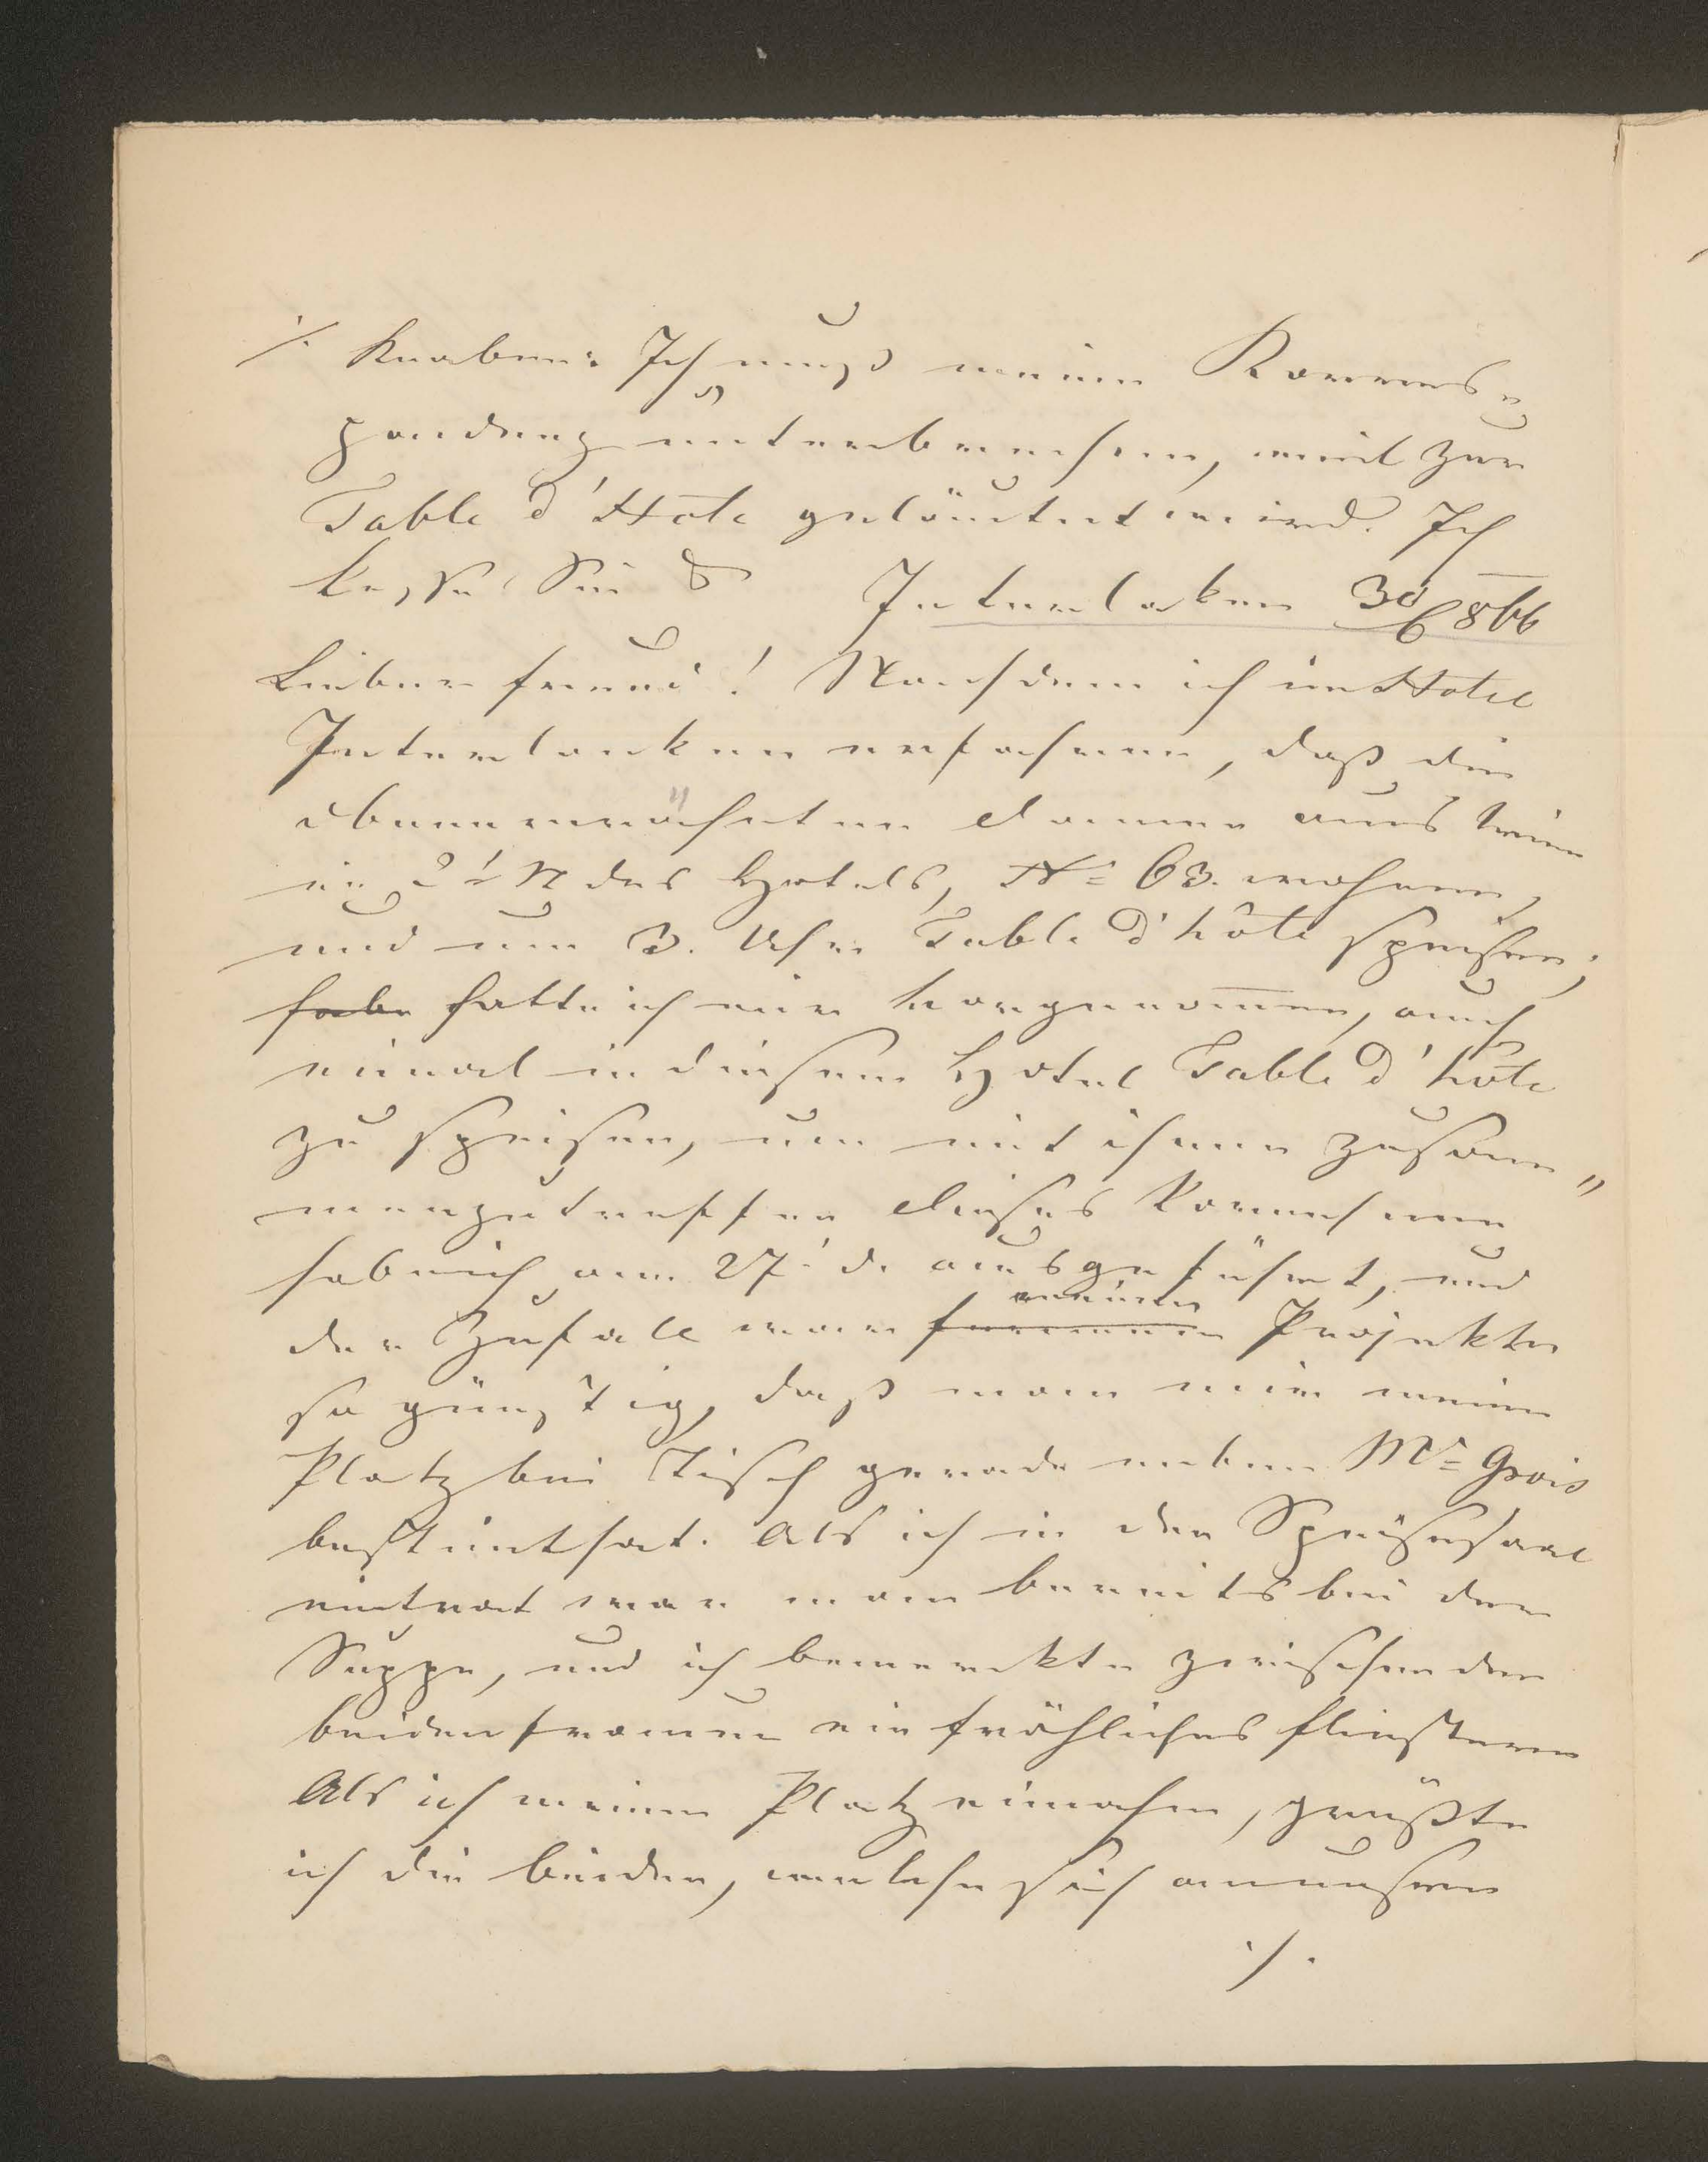 ./. Knaben: Ich muß meine Korres=
pondenz unterbrechen, weil zur
Table d'Hôte geläutet wird. Ich
küsse Sie
Interlaken 30/6 866
Lieber Freund! Nachdem ich im Hotel
Interlaken erfahren, daß die
obenerwähnten Damen aus Wien
im 2' St des Hotels, No 63. wohnen,
und um 3. Uhr Table d'hôte speisen;
habe hatte ich mir vorgenommen, auch
einmal in diesem Hotel Table d'hôte
zu speisen, um mit ihnen zusam=
menzutreffen dieses Vornehmen
hab ich am 27' d. ausgeführt, und
meinen
der Zufall war Projekte
so günstig, daß man mir meinen
Platz bei Tisch gerade neben Mr Grois
bestimt hat. Als ich in den Speisesaal
eintrat war man bereits bei der
Suppe, und ich bemerkte zwischen den
beiden Frauen ein fröhliches Flüstern
Als ich meinen Platz einnahm, grüßte
ich die beiden, welche sich
./.